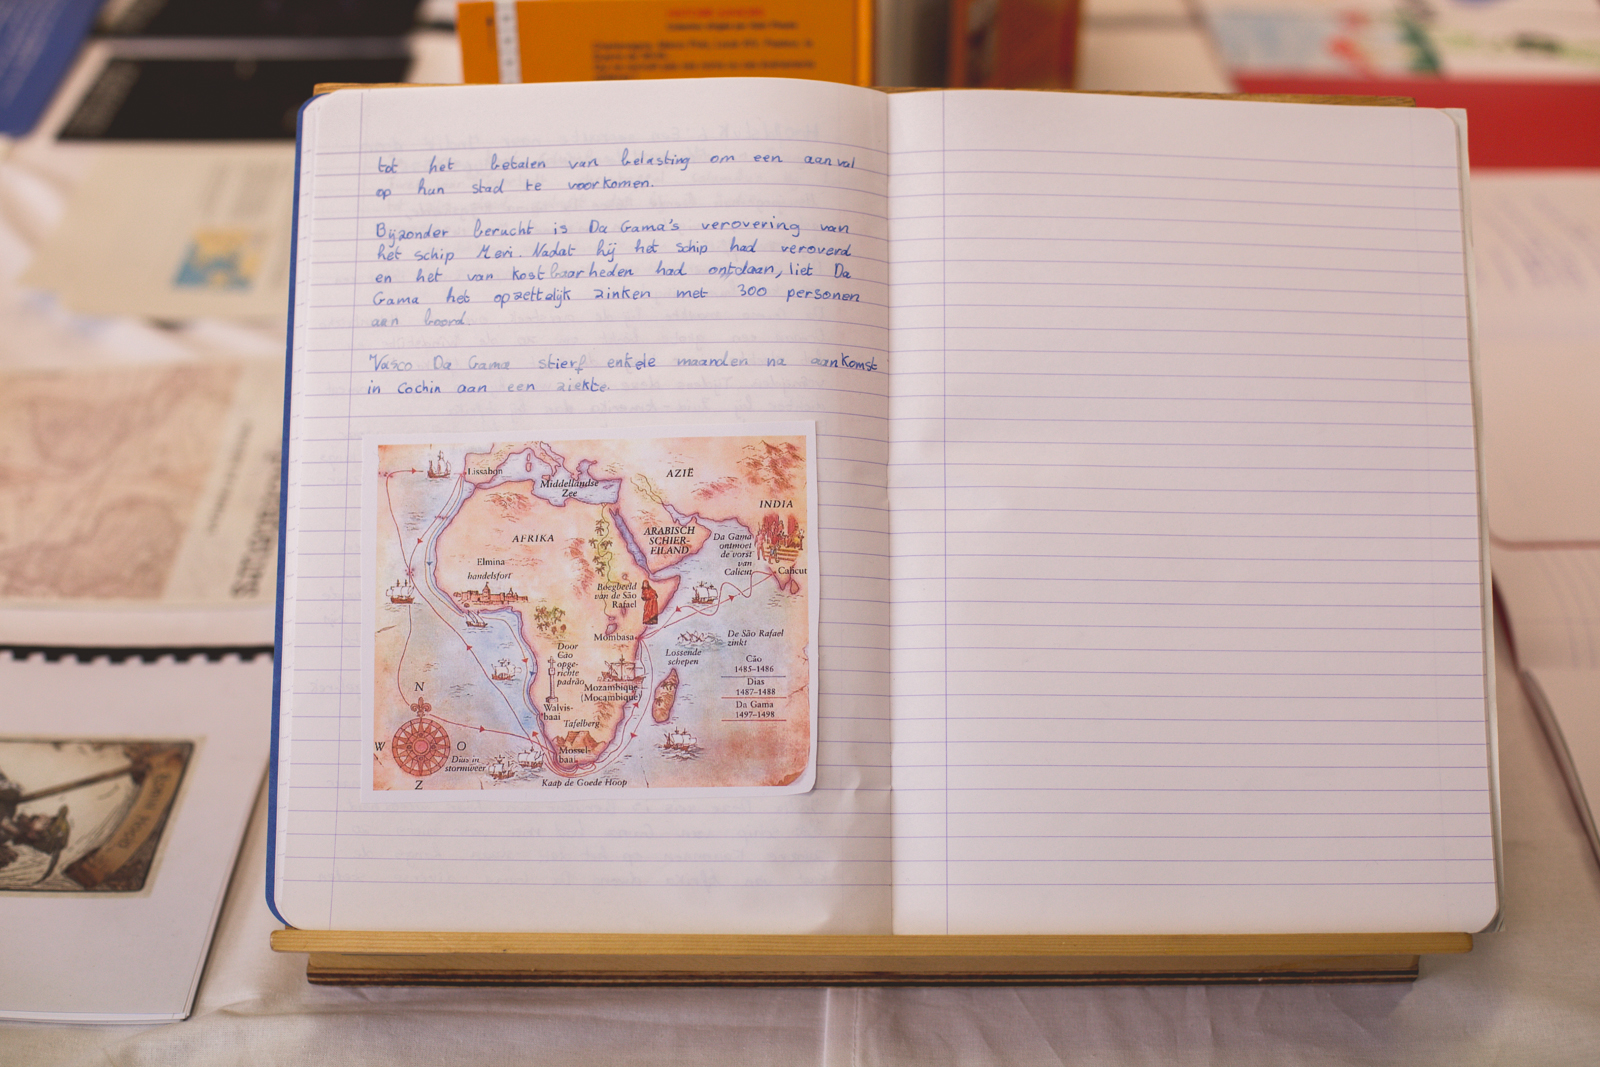 tot het betalen van belasting om een aanval
op hun stad te voorkomen.
Bijzonder berucht is Da Gama's verovering van
het schip Meri. Nadat hij het schip had veroverd
en het van kostbaarheden had ontdaan, liet Da
Gama het opzettelijk zinken met 300 personen
aan boord.
Vasco Da Gama stierf enkele maanden na aankomst
in Cochin aan een ziekte.
Lissabon
Middellandse
Zee
AZIË
INDIA
AFRIKA
ARABISCH
SCHIER-
EILAND
Da Gama
ontmoet
de vorst
van
Calicut
Calicut
Elmina
handelsfort
Boegbeeld
van de São
Rafael
Mombasa
De São Rafael
zinkt
Lossende
schepen
Door
Cão
opge-
richte
padrão
Mozambique
(Moçambique)
Cão
1485–1486
Dias
1487–1488
Da Gama
1497–1498
N
W
O
Z
Walvis-
baai
Tafelberg
Mossel-
baai
Dias in
stormweer
Kaap de Goede Hoop